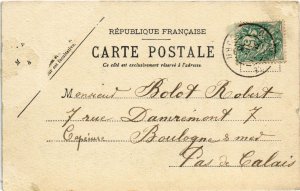 RÉPUBLIQUE FRANÇAISE
CARTE POSTALE
Ce côté est exclusivement réservé à l'adresse
Monsieur Bolot Robert
7 rue Damremont 7
Boulogne s mer
Pas de Calais